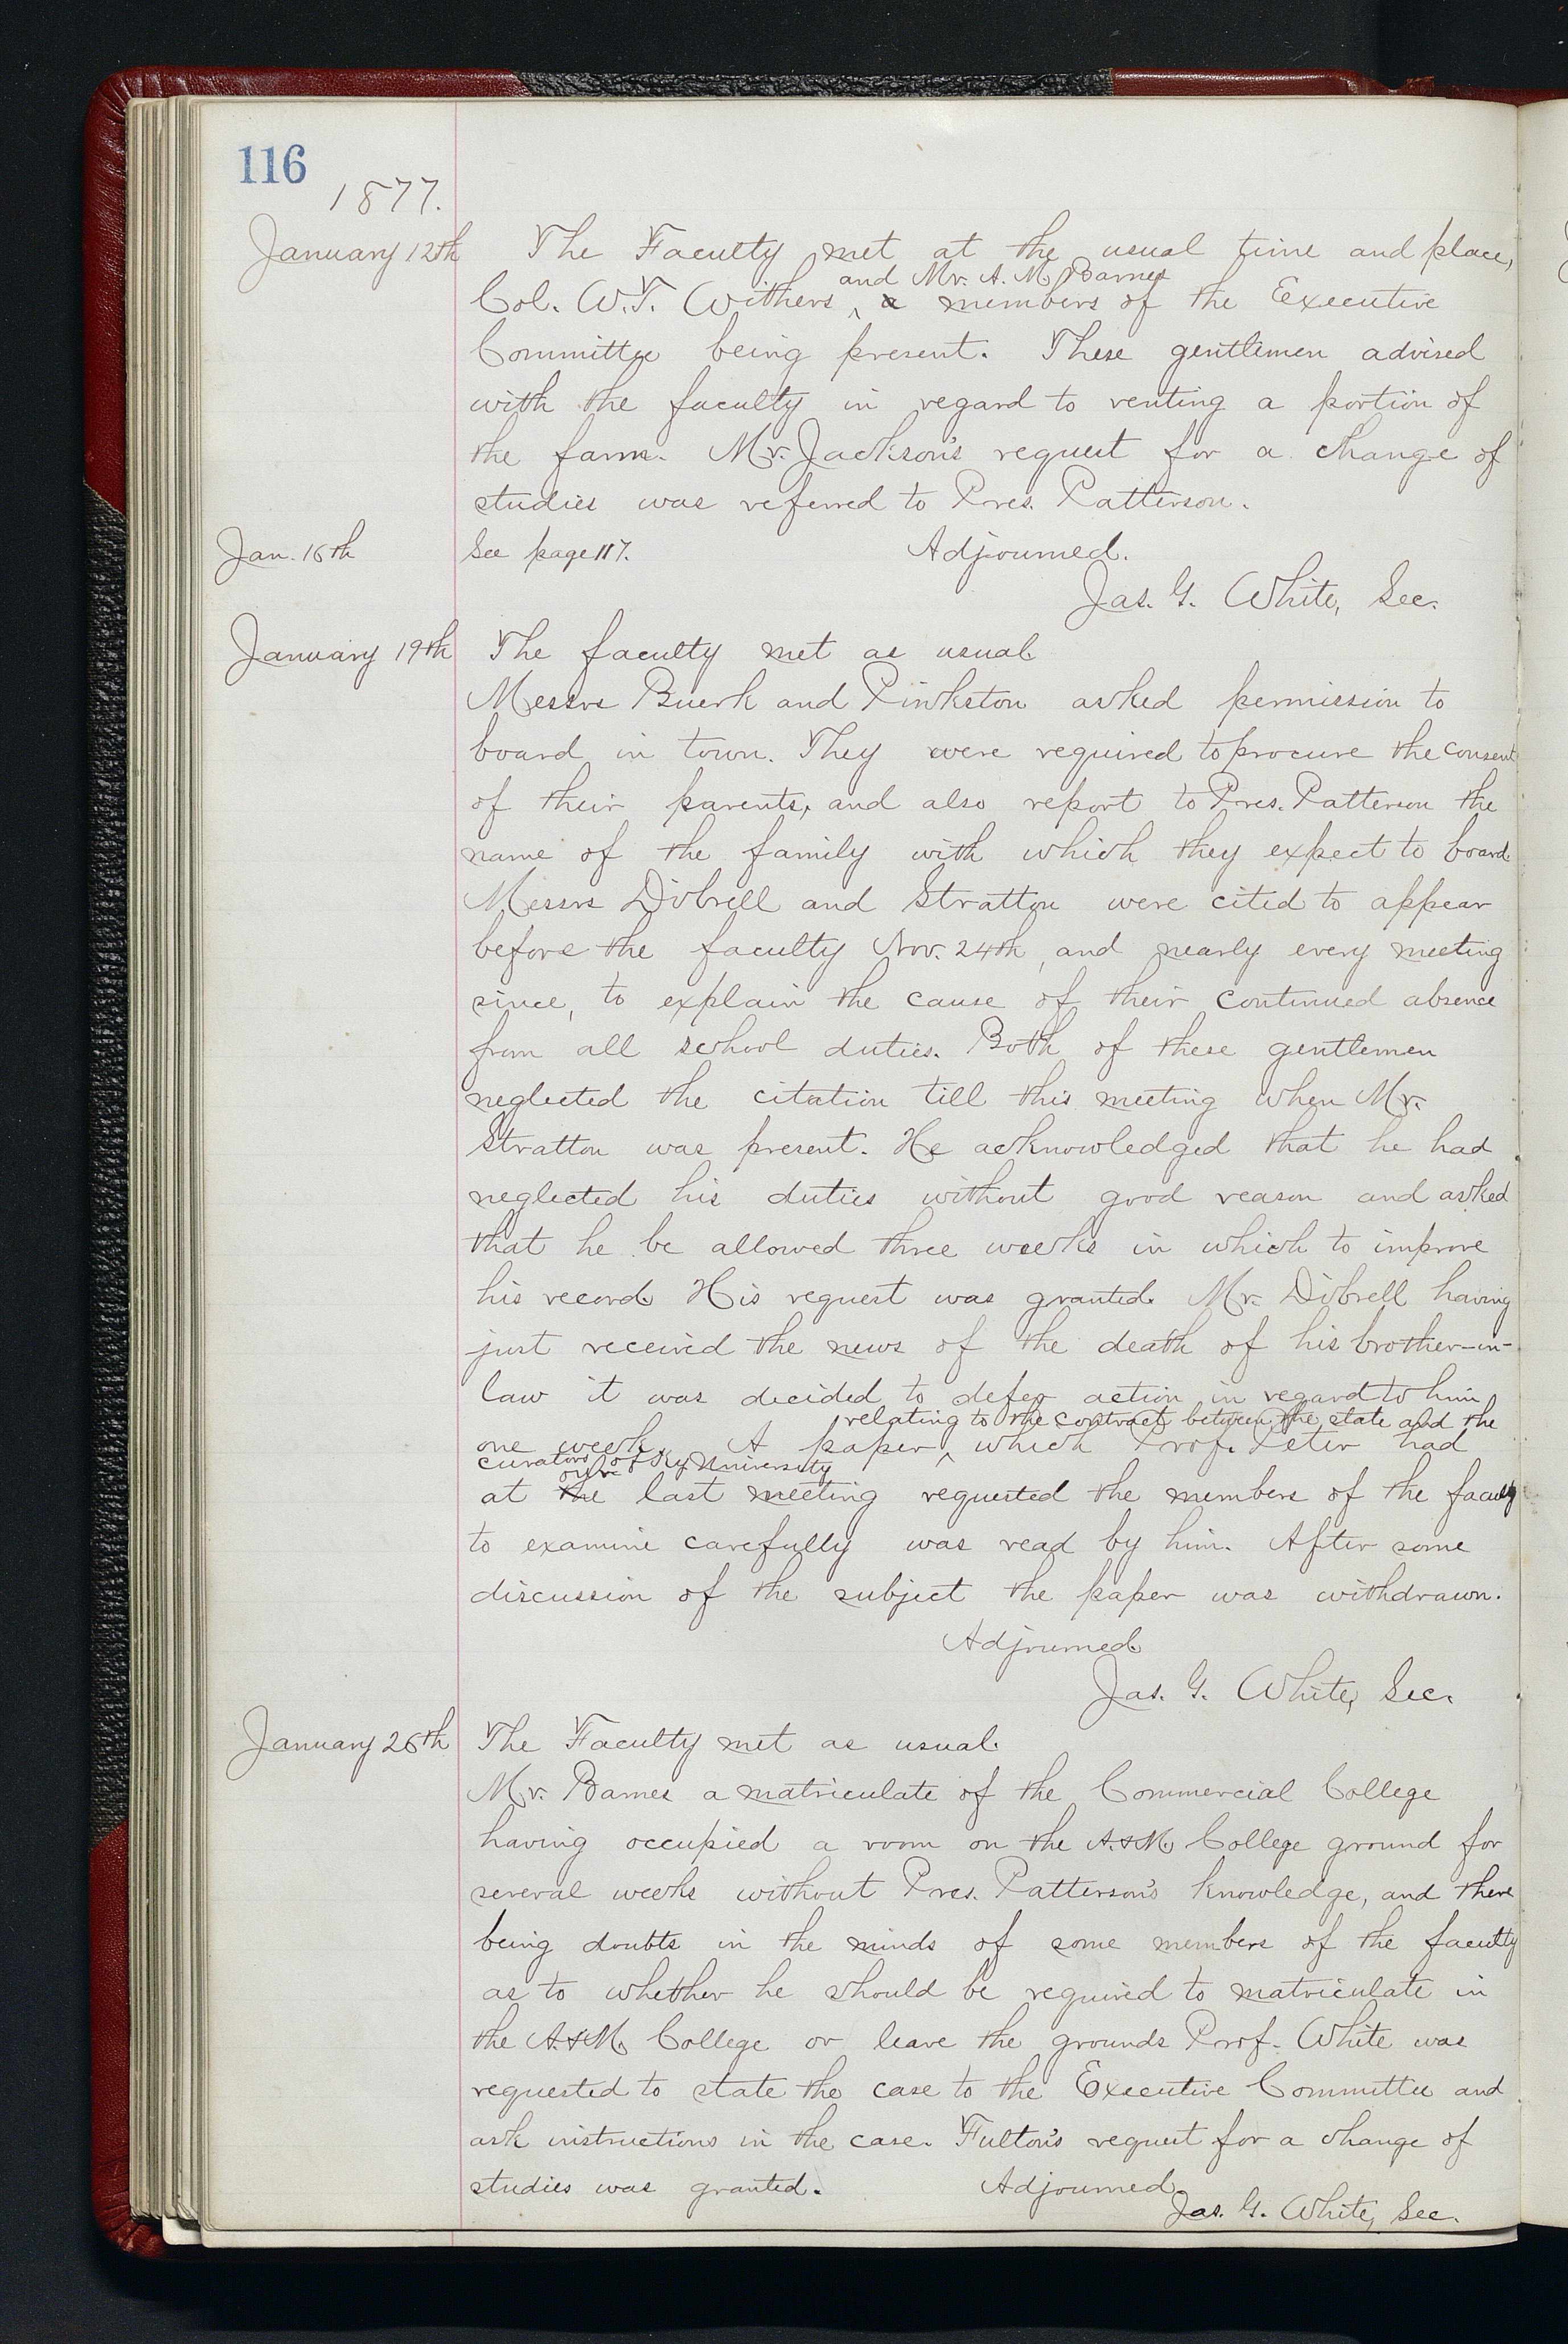 116
1877.
January 12th The Faculty met at the usual time and place,
and Mr. A. M. Barnes
Col. W. T. Withers ‸ a members of the Executive
Committee being present. These gentlemen advised
with the faculty in regard to renting a portion of
the farm. Mr. Jackson's request for a change of
studies was referred to Pres. Patterson.
Jan. 16th See page 117. Adjourned.
Jas. G. White, Sec.
January 19th The faculty met as usual.
Messrs Buerk and Pinkston asked permission to
board in town. They were required to procure the consent
of their parents, and also report to Pres. Patterson the
name of the family with which they expect to board.
Messrs Dibrell and Stratton were cited to appear
before the faculty Nov. 24th, and nearly every meeting
since, to explain the cause of their continued absence
from all school duties. Both of these gentlemen
neglected the citation till this meeting when Mr.
Stratton was present. He acknowledged that he had
neglected his duties without good reason and asked
that he be allowed three weeks in which to improve
his record. His request was granted. Mr. Dibrell having
just received the news of the death of his brother-in-
law it was decided to defer action in regard to him
relating to the contract between the state and the
one week. A paper ‸ which Prof. Peter had
curators of Ky. University
our
at the last meeting requested the members of the faculty
to examine carefully was read by him. After some
discussion of the subject the paper was withdrawn.
Adjourned
Jas. G. White, Sec.
January 26th The Faculty met as usual.
Mr. Barnes a matriculate of the Commercial College
having occupied a room on the A.&M. College ground for
several weeks without Pres. Patterson's knowledge, and there
being doubts in the minds of some members of the faculty
as to whether he should be required to matriculate in
the A.&M. College or leave the grounds Prof. White was
requested to state the case to the Executive Committee and
ask instructions in the case. Fulton's request for a change of
studies was granted. Adjourned.
Jas. G. White, Sec.